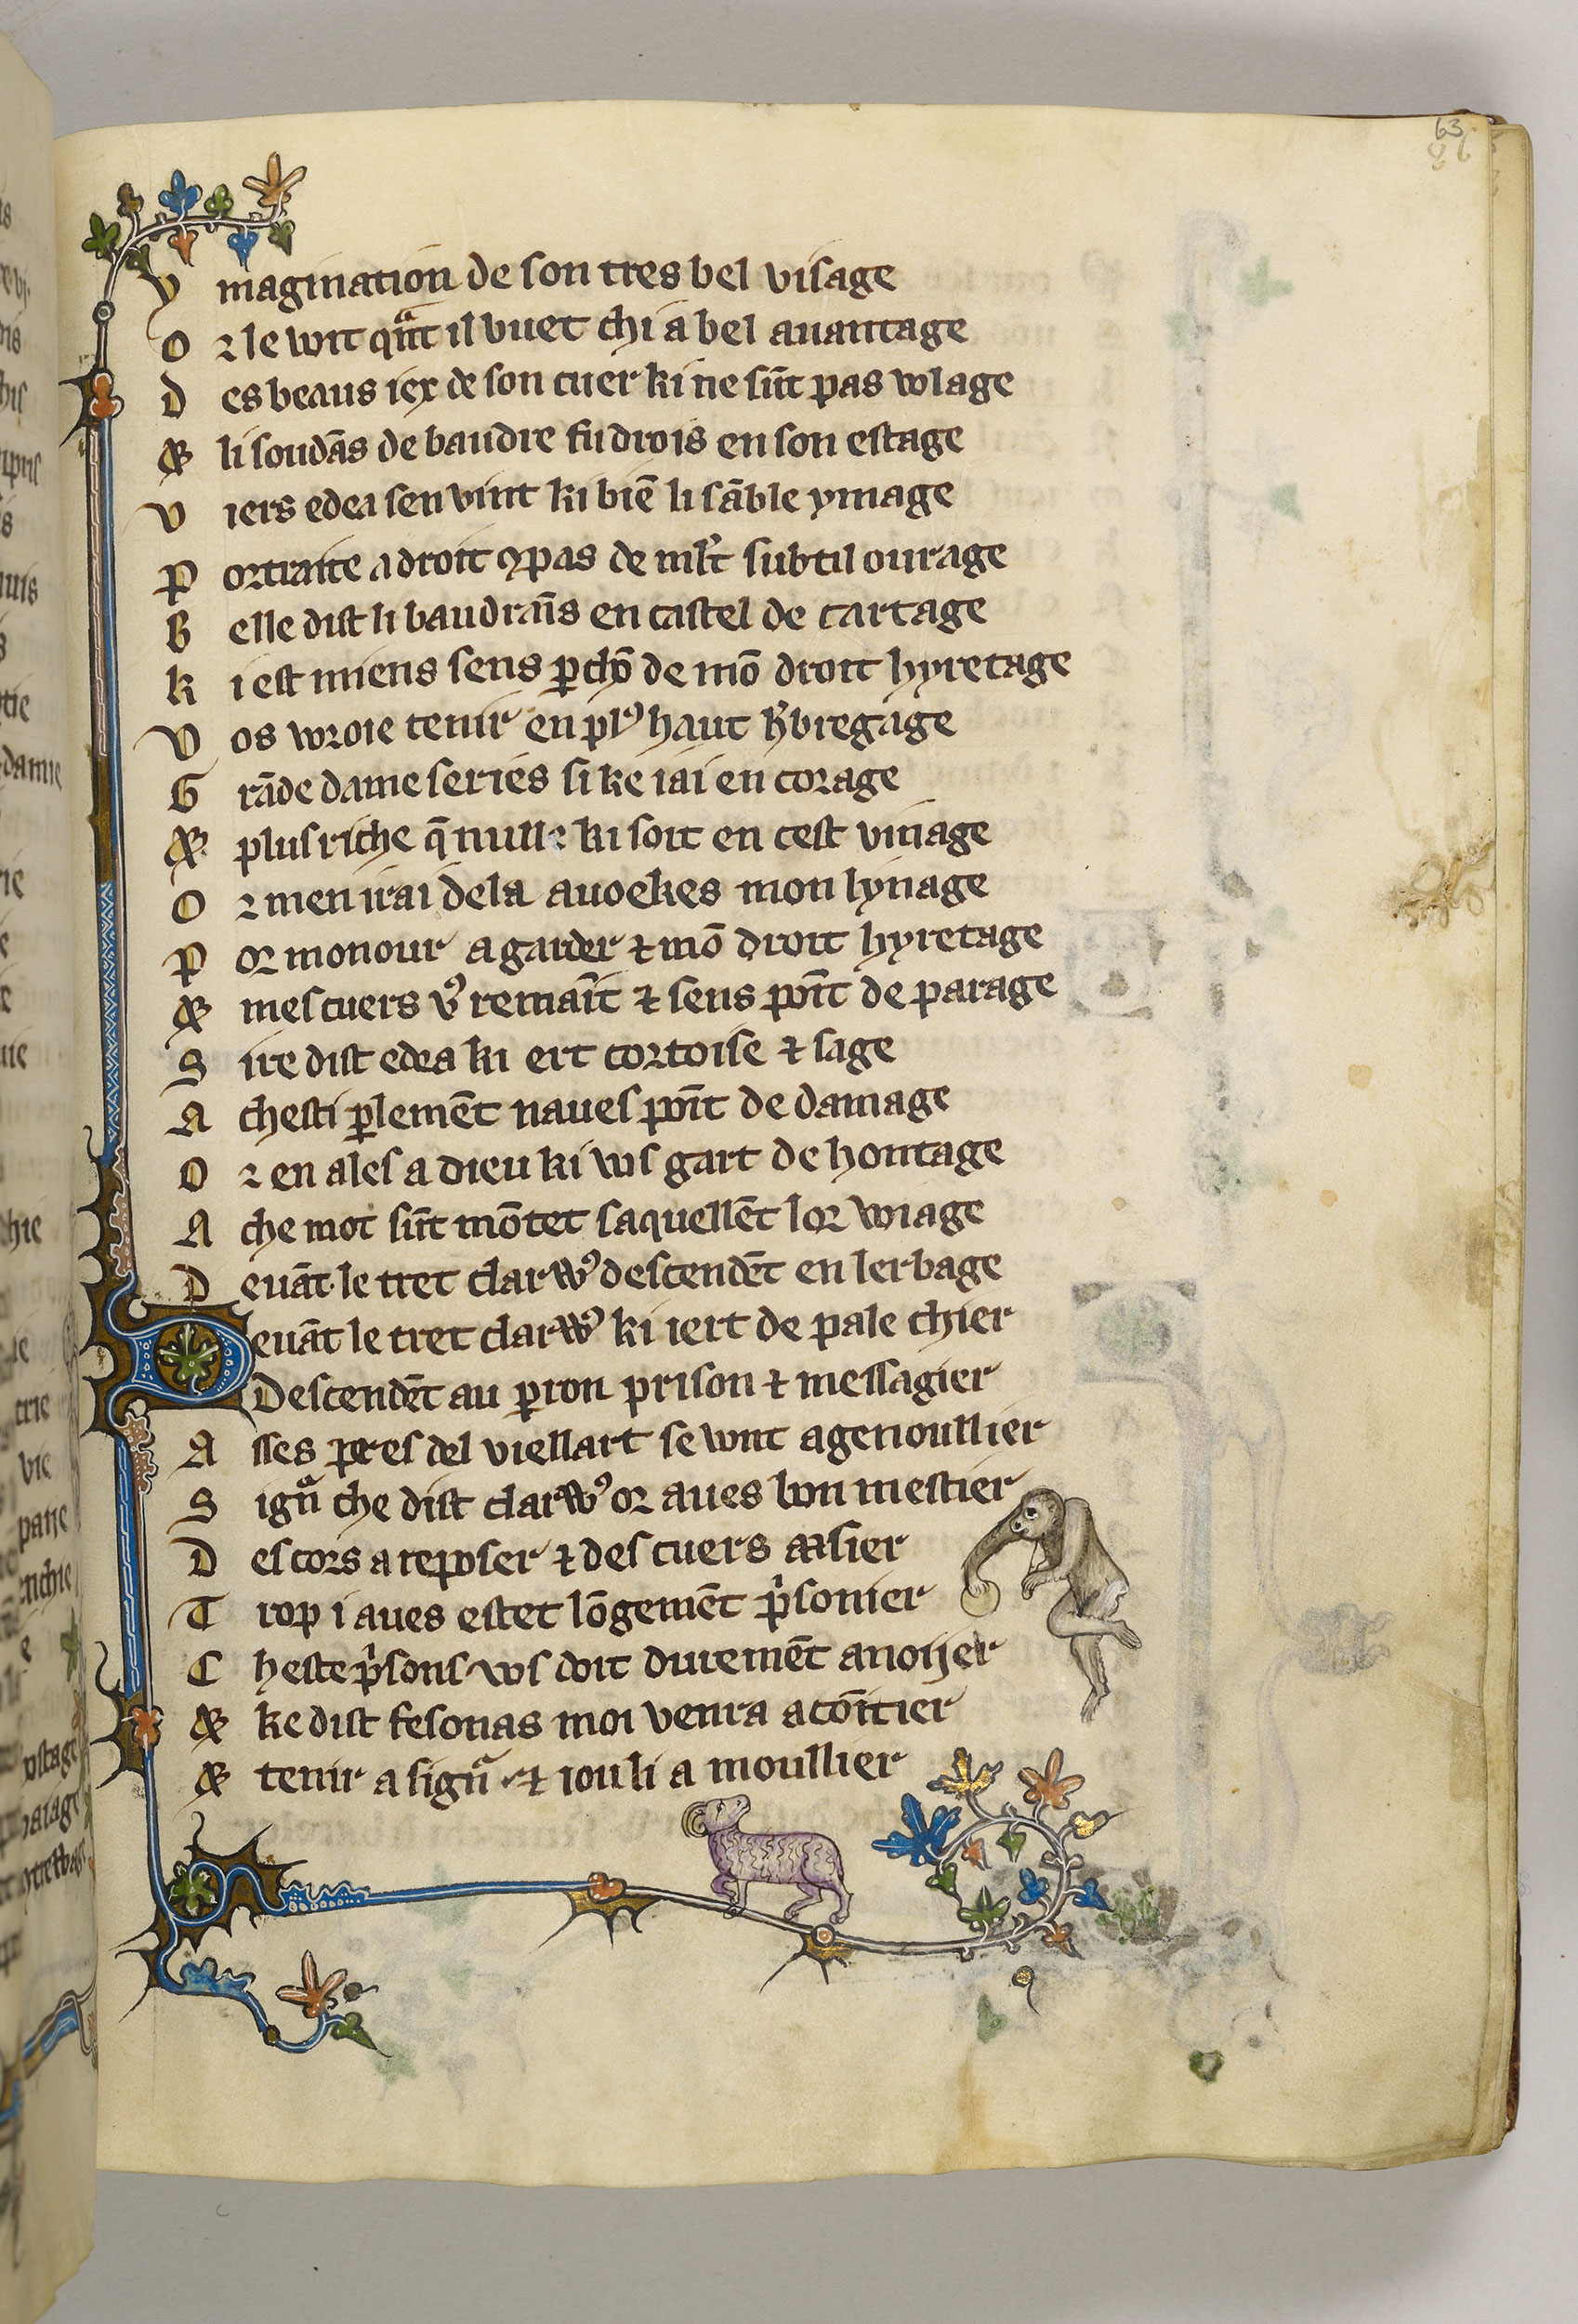 63
26
Y magination de son tres bel visage
O r le wit qnͣt il vuet chi a bel auantage
D es beaus iex de son cuer ki ne sūt pas wlage
& li soudās de baudre fu drois en son estage
V iers edea sen vint ki biē li sāble ymage
P ortraite a droit ꝯpas de mlt̛ subtil ourage
B elle dist li baudrains en castel de cartage
K i est miens sens ꝑchō de mō droit hyretage
V os wroie tenir en plꝰ haut h̄bregage
G rāde dame series si ke iai en corage
& plus riche q̄ nulle ki soit en cest vinage
O r men irai dela auoekes mon lynage
P or monour a garder ⁊ mō droit hyretage
& mes cuers vꝰ remaīt ⁊ sens poīt de parage
S ire dist edea ki ert cortoise ⁊ sage
A chesti ꝑlemēt naues poīt de damage
O r en ales a dieu ki ws gart de hontage
A che mot sūt mōtet saquellēt lor voiage
D euāt le tret clarwꝰ descendēt en lerbage
D euāt le tret clarwꝰ ki iert de pale chier
Descendēt au ꝑron prison ⁊ messagier
A sses pres del viellart se wnt agenoullier
S ign̛ che dist clarwꝰ or aues bon mestier
D es cors a reposer ⁊ des cuers aasier
T rop i aues estet lōgemēt pͥsonier
C heste pͥsons ws doit duremēt anoijer
& ke dist fesonas moi venra acoītier
& tenir a sign̛ ⁊ iou li a moullier